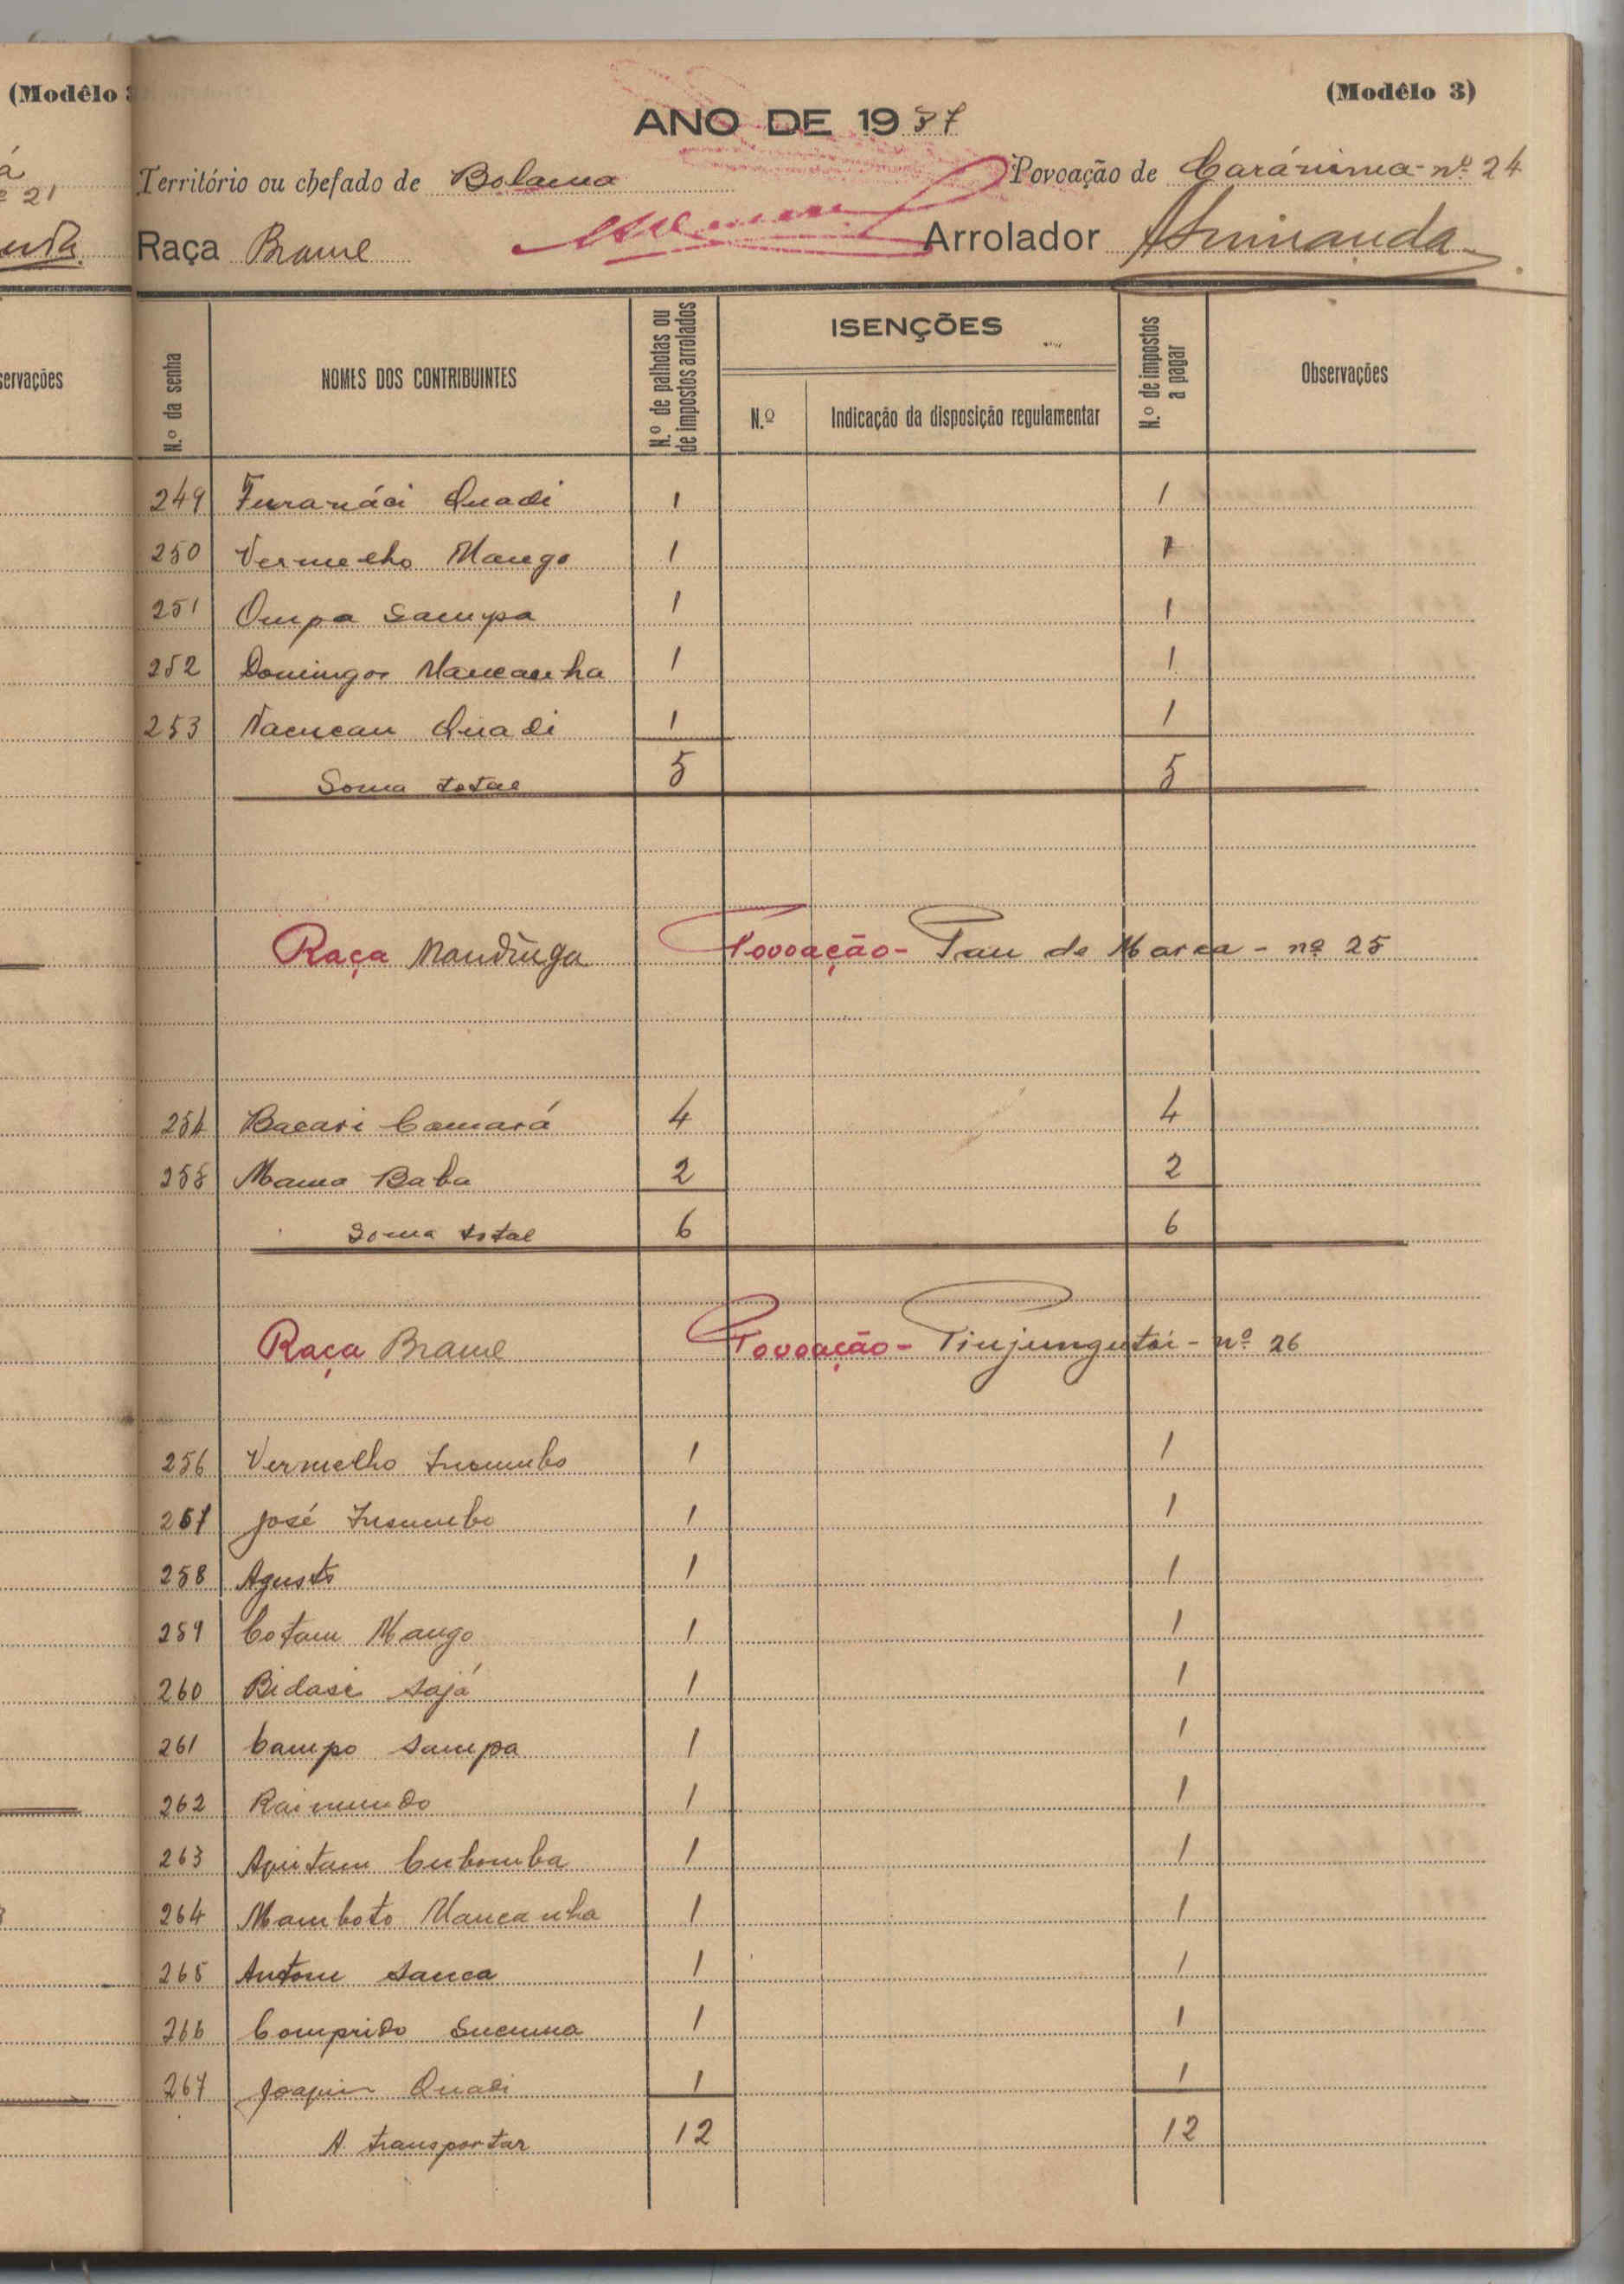 (Modêlo
(Modêlo 3)
ANO DE 1937
Território ou chefado de Bolama Povoação de Caránima - nº 24
nº 21
Raça Brame Arrolador
servações
N.º da senha NOMES DOS CONTRIBUINTES N.º de palhotas ou de impostos arrolados ISENÇÕES N.º de impostos a pagar Observações
N.º Indicação da disposição regulamentar
249 Quadi 1 1
250 Vermelho Mango 1 1
251 Ompa Sampa 1 1
252 Domingos Mancanha 1 1
253 Nacucau Quadi 1 1
Soma total 5 5
Raça Mandinga Povoação - Pau de Marca - nº 25
254 Bacari Camará 4 4
255 Mama Baba 2 2
Soma total 6 6
Raça Brame Povoação - - nº 26
256 Vermelho Insumbo 1 1
257 José Insumbo 1 1
258 Agusto 1 1
259 Cotam Mango 1 1
260 Bidasi Sajá 1 1
261 Campo Sampa 1 1
262 Raimundo 1 1
263 Cubomba 1 1
264 Mamboto Mancanha 1 1
265 Antoni Sanca 1 1
266 Comprido Sucuma 1 1
267 Joaquin Quadi 1 1
A transportar 12 12